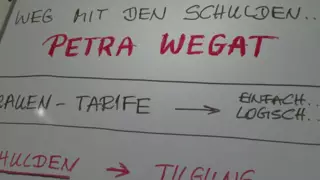 WEG MIT DEN SCHULDEN..
PETRA WEGAT
RAUEN - TARIFE → EINFACH..
LOGISCH..
HULDEN → TILGUNG